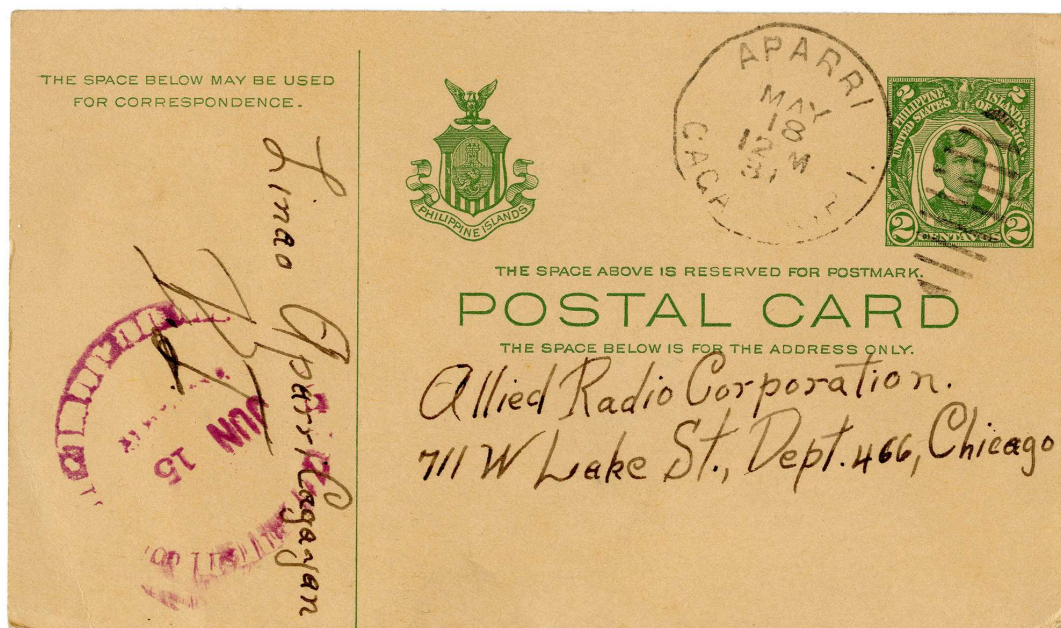 THE SPACE BELOW MAY BE USED
FOR CORRESPONDENCE.
Linao Aparri Cagayan
P.I.
JUN
15
PHILIPPINE ISLANDS
APARRI
MAY
18
12 M
31
CAGA P.I.
2 2
PHILIPPINE ISLANDS
UNITED STATES OF AMERICA
2 CENTAVOS 2
THE SPACE ABOVE IS RESERVED FOR POSTMARK.
POSTAL CARD
THE SPACE BELOW IS FOR THE ADDRESS ONLY.
Allied Radio Corporation.
711 W Lake St., Dept. 466, Chicago